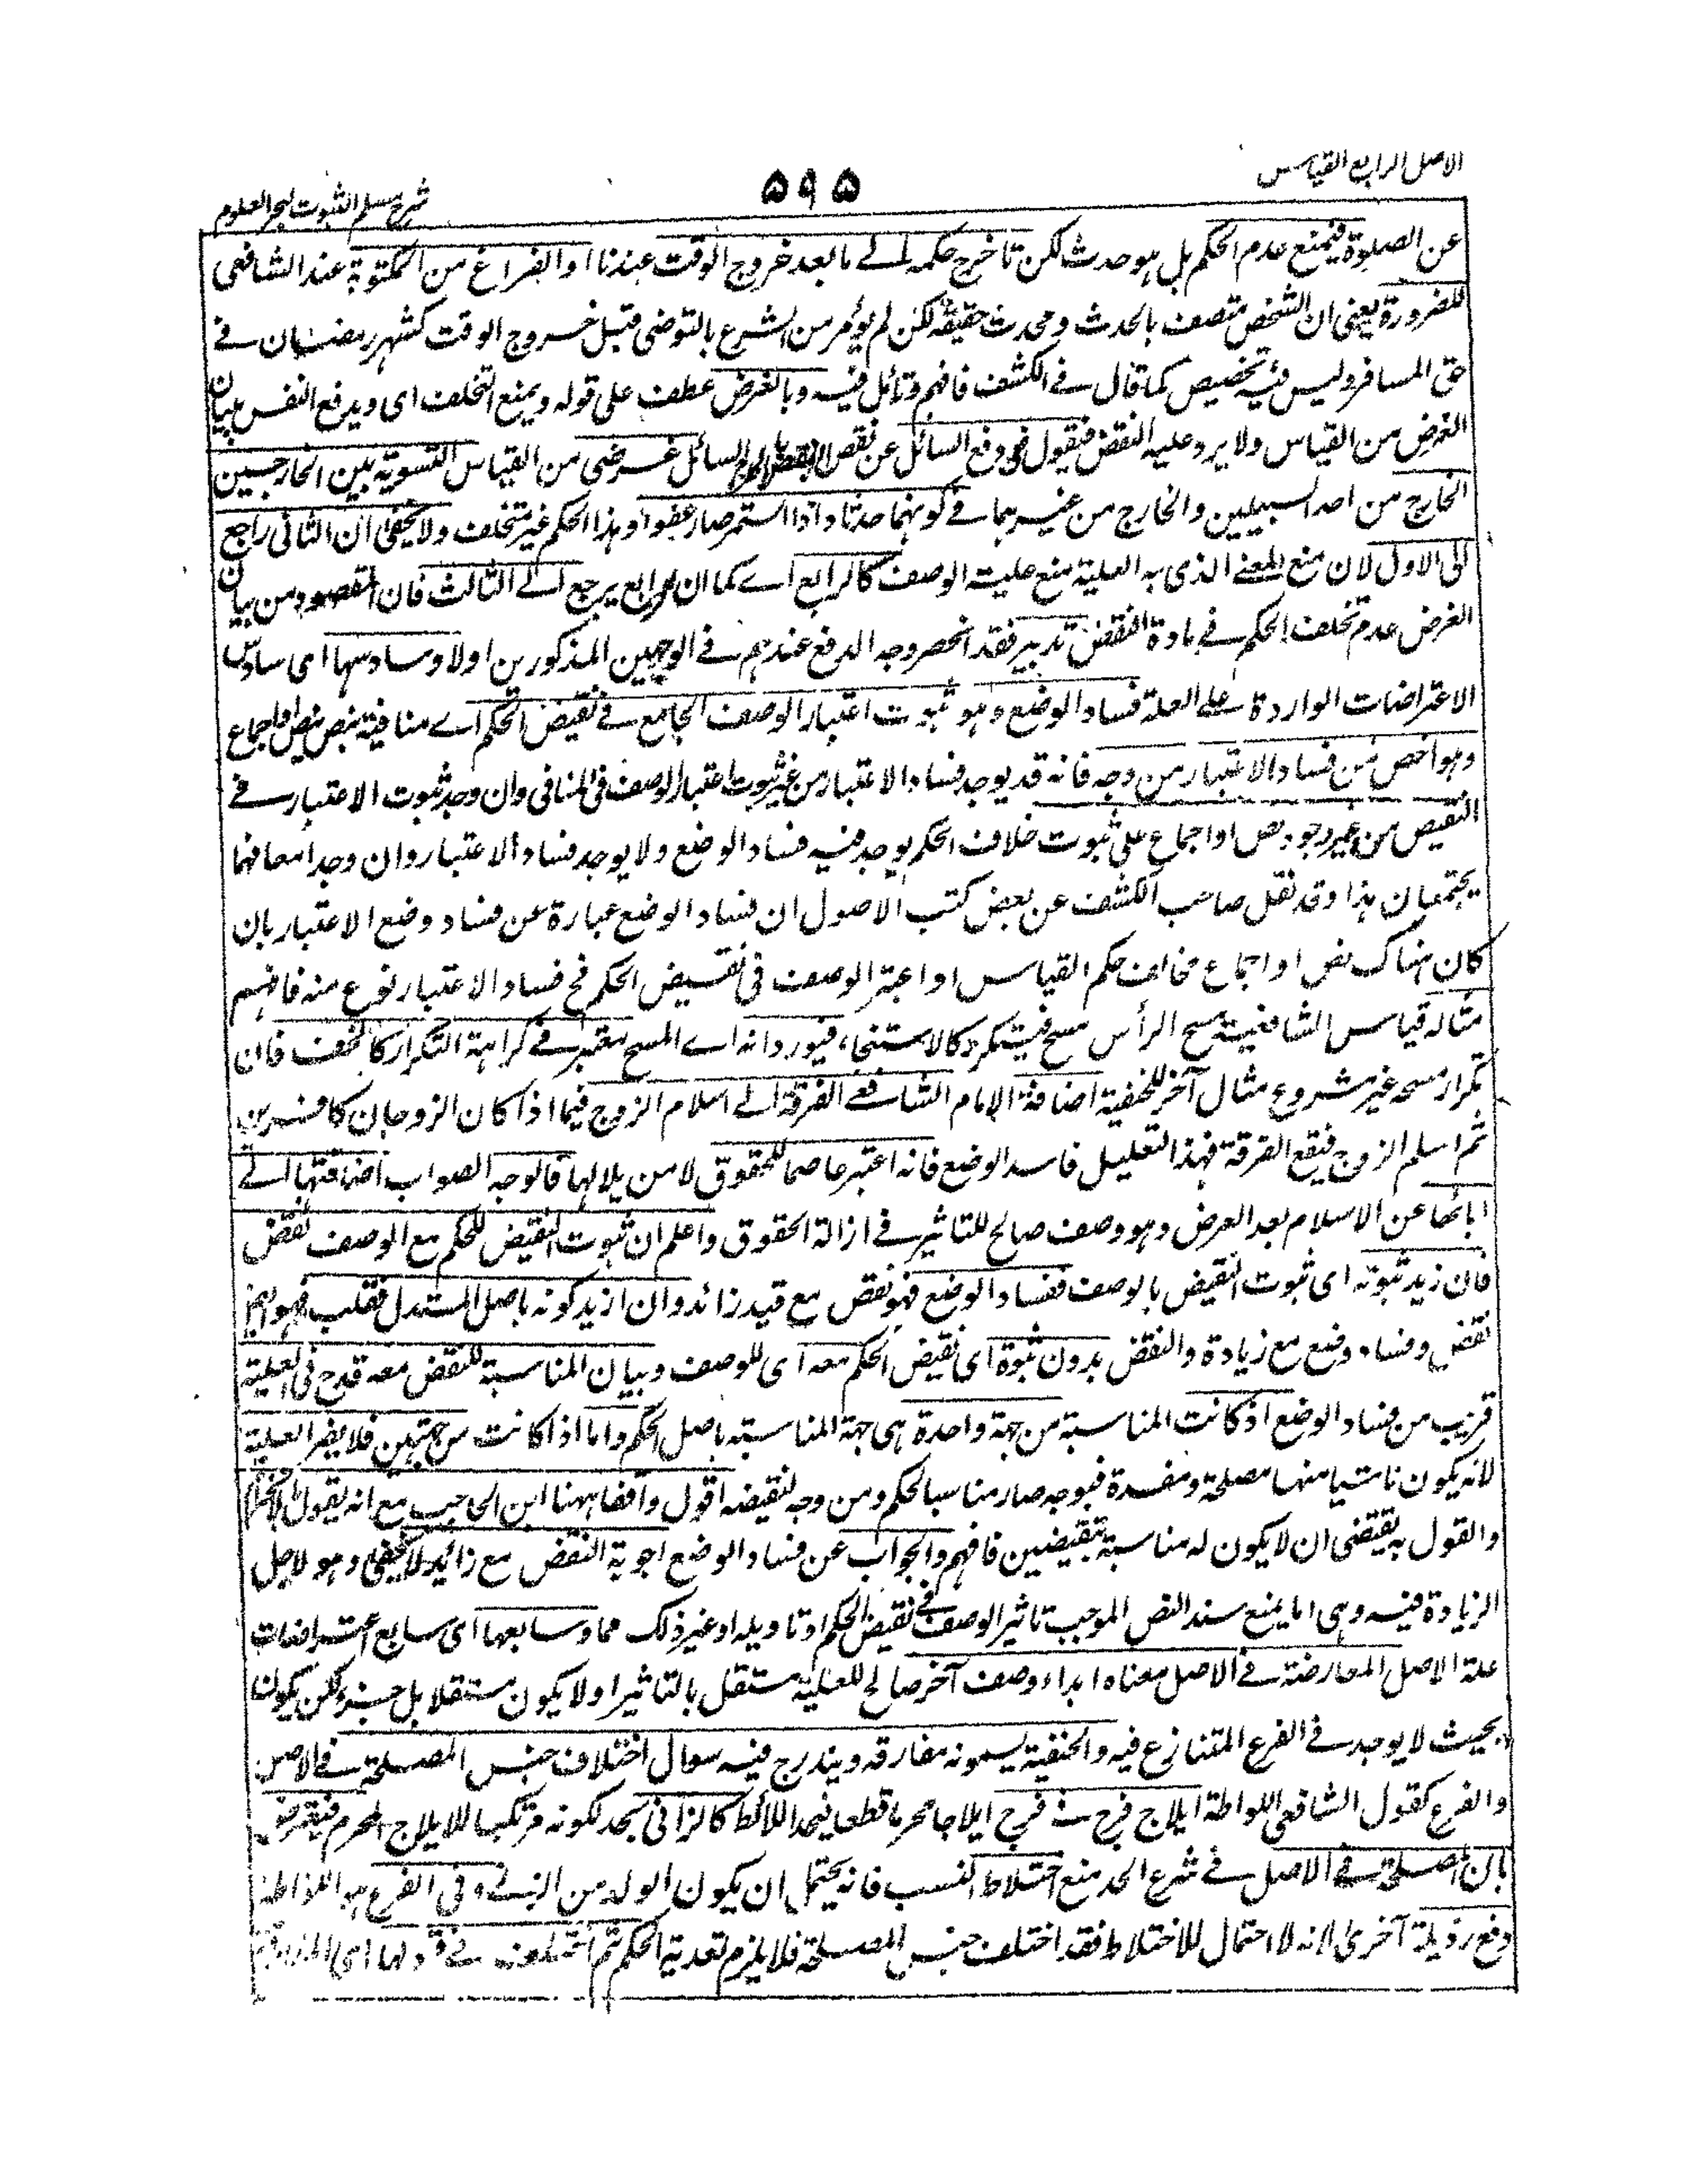 الاصل الرابع القياس
۵۹۵
شرح مسلم الثبوت لبحر العلوم
عن الصلوة فيمنع عدم الحكم بل هو حدث لكن تأخر حكمه الى ما بعد خروج الوقت عندنا او الفراغ من المكتوبة عند الشافعي
للضرورة يعني ان الشخص متصف بالحدث ومحدث حقيقة لكن لم يؤمر من الشرع بالتوضي قبل خروج الوقت كشهر رمضان في
حق المسافر وليس فيه تخصيص كما قال في الكشف فافهم وتأمل فيه وبالغرض عطف على قوله ويمنع التخلف اى ويدفع النقض ببيان
الغرض من القياس ولا يرد عليه النقض فيقول في دفع السائل عن نقض السائل غرضي من القياس التسوية بين الخارجين
الخارج من احد السبيلين والخارج من غيرهما في كونهما حدثا واذا استمر صار عفوا وهذا الحكم غير متخلف ولا يخفى ان الثاني راجع
الى الاول لان منع المعنى الذي به العلية منع علية الوصف كالرابع اے كما ان الرابع يرجع الى الثالث فان المقصود من بيان
الغرض عدم تخلف الحكم في مادة النقض تدبر فقد انحصر وجه الدفع عندهم في الوجهين المذكورين اولا وسادسها اى سادس
الاعتراضات الواردة على العلة فساد الوضع وهو ثبوت اعتبار الوصف الجامع في نقيض الحكم اے منافيه بنص او اجماع
وهو اخص من فساد الاعتبار من وجه فانه قد يوجد فساد الاعتبار من غير ثبوت اعتبار الوصف في المنافي وان وجد ثبوت الاعتبار في
النقيض من غير وجود نص او اجماع على ثبوت خلاف الحكم يوجد فيه فساد الوضع ولا يوجد فساد الاعتبار وان وجدا معا فهما
يجتمعان هذا وقد نقل صاحب الكشف عن بعض كتب الاصول ان فساد الوضع عبارة عن فساد وضع الاعتبار بان
كان هناك نص او اجماع مخالف حكم القياس او اعتبر الوصف في نقيض الحكم فح فساد الاعتبار نوع منه فافهم
مثاله قياس الشافعية مسح الرأس مسح فيتكرر كالاستنجاء فيورد انه اے المسح معتبر في كراهة التكرار كالخف فان
تكرار مسحه غير مشروع مثال آخر للحنفية اضافة الامام الشافعي الفرقة الى اسلام الزوج فيما اذا كان الزوجان كافرين
ثم اسلم الزوج فيقع الفرقة فهذا التعليل فاسد الوضع فانه اعتبر عاصما للحقوق لا مزيلا لها فالوجه الصواب اضافتها الى
ابائها عن الاسلام بعد العرض وهو وصف صالح للتاثير في ازالة الحقوق واعلم ان ثبوت النقيض للحكم مع الوصف نقض
فان زيد ثبوته اى ثبوت النقيض بالوصف ففساد الوضع فهو نقض مع قيد زائد وان ازيد كونه باصل المستدل فقلب فهو
نقض وفساد وضع مع زيادة والنقض بدون ثبوته اى نقيض الحكم معه اى للوصف وبيان المناسبة للنقض معه قدح في العلية
قريب من فساد الوضع اذ كانت المناسبة من جهة واحدة هي جهة المناسبة باصل الحكم واما اذا كانت من جهتين فلا يضر العلية
لانه يكون ناشيا منها مصلحة ومفسدة فبوجه صار مناسبا لحكم ومن وجه لنقيضه اقول وافقنا ههنا ابن الحاجب مع انه يقول
والقول به يقتضي ان لا يكون له مناسبة بنقيضين فافهم والجواب عن فساد الوضع اجوبة النقض مع زائد لا يخفى وهو لاجل
الزيادة فيه وهي اما يمنع سند النص الموجب تاثير الوصف في نقيض الحكم او تاويله او غير ذلك مما وسابعها اى سابع اعتراضات
علة الاصل المعارضة في الاصل معناه ابداء وصف آخر صالح للعلية مستقل بالتاثير او لا يكون مستقلا بل جزء لكن يكون
بحيث لا يوجد في الفرع المتنازع فيه والحنفية يسمونه مفارقه ويندرج فيه سوال اختلاف جنس المصلحة في الاصل
والفرع كقول الشافعي اللواطة ايلاج فرج في فرج ايلاجا محرما قطعا فيحد اللائط كالزاني يحد لكونه مرتكبا للايلاج المحرم فيعترض
بان المصلحة في الاصل في شرع الحد منع اختلاط النسب فانه يحتمل ان يكون الولد من الزنى وفي الفرع هو اللواطة
دفع رذيلة آخرى لانه لا احتمال للاختلاط فقد اختلف جنس المصلحة فلا يلزم تعدية الحكم ثم اختلف في قبولها اى